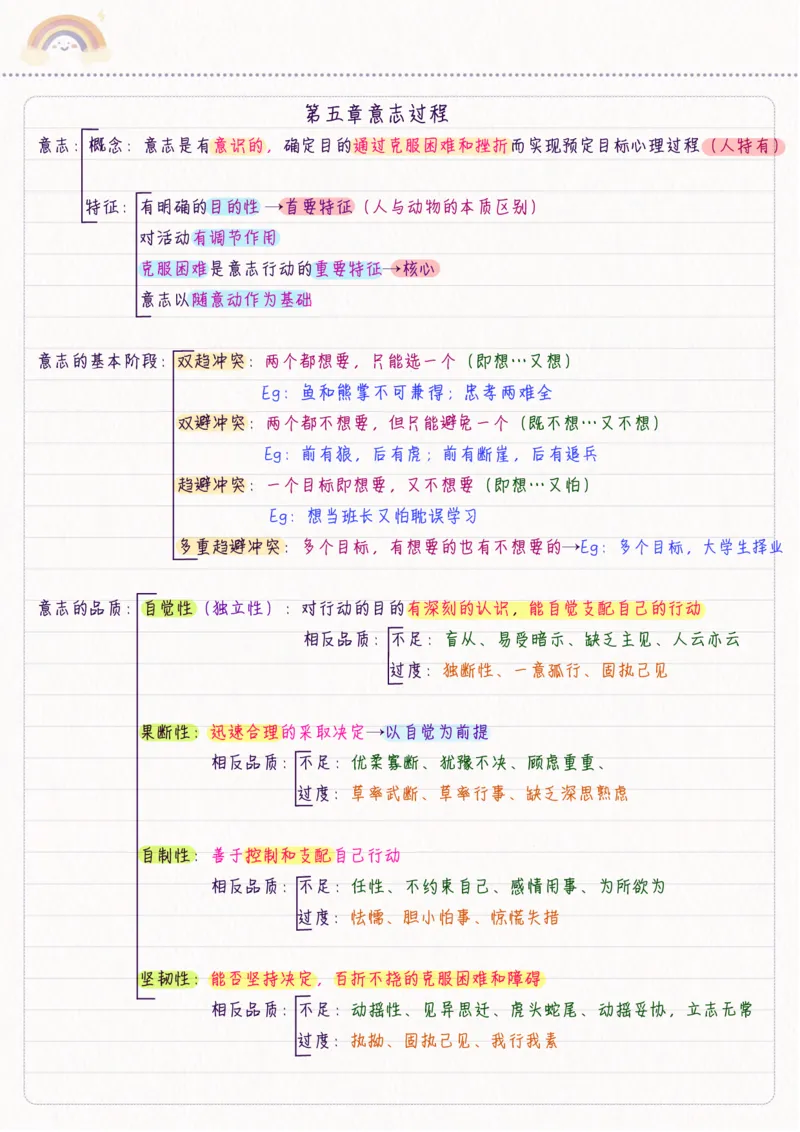 第五章意志过程
意志：概念：意志是有意识的，确定目的通过克服困难和挫折而实现预定目标心理过程（人特有）
特征：有明确的目的性→首要特征（人与动物的本质区别）
对活动有调节作用
克服困难是意志行动的重要特征→核心
意志以随意动作为基础
意志的基本阶段：双趋冲突：两个都想要，只能选一个（即想…又想）
Eg：鱼和熊掌不可兼得；忠孝两难全
双避冲突：两个都不想要，但只能避免一个（既不想…又不想）
Eg：前有狼，后有虎；前有断崖，后有追兵
趋避冲突：一个目标即想要，又不想要（即想…又怕）
Eg：想当班长又怕耽误学习
多重趋避冲突：多个目标，有想要的也有不想要的→Eg：多个目标，大学生择业
意志的品质：自觉性（独立性）：对行动的目的有深刻的认识，能自觉支配自己的行动
相反品质：不足：盲从、易受暗示、缺乏主见、人云亦云
过度：独断性、一意孤行、固执己见
果断性：迅速合理的采取决定→以自觉为前提
相反品质：不足：优柔寡断、犹豫不决、顾虑重重、
过度：草率武断、草率行事、缺乏深思熟虑
自制性：善于控制和支配自己行动
相反品质：不足：任性、不约束自己、感情用事、为所欲为
过度：怯懦、胆小怕事、惊慌失措
坚韧性：能否坚持决定，百折不挠的克服困难和障碍
相反品质：不足：动摇性、见异思迁、虎头蛇尾、动摇妥协，立志无常
过度：执拗、固执己见、我行我素